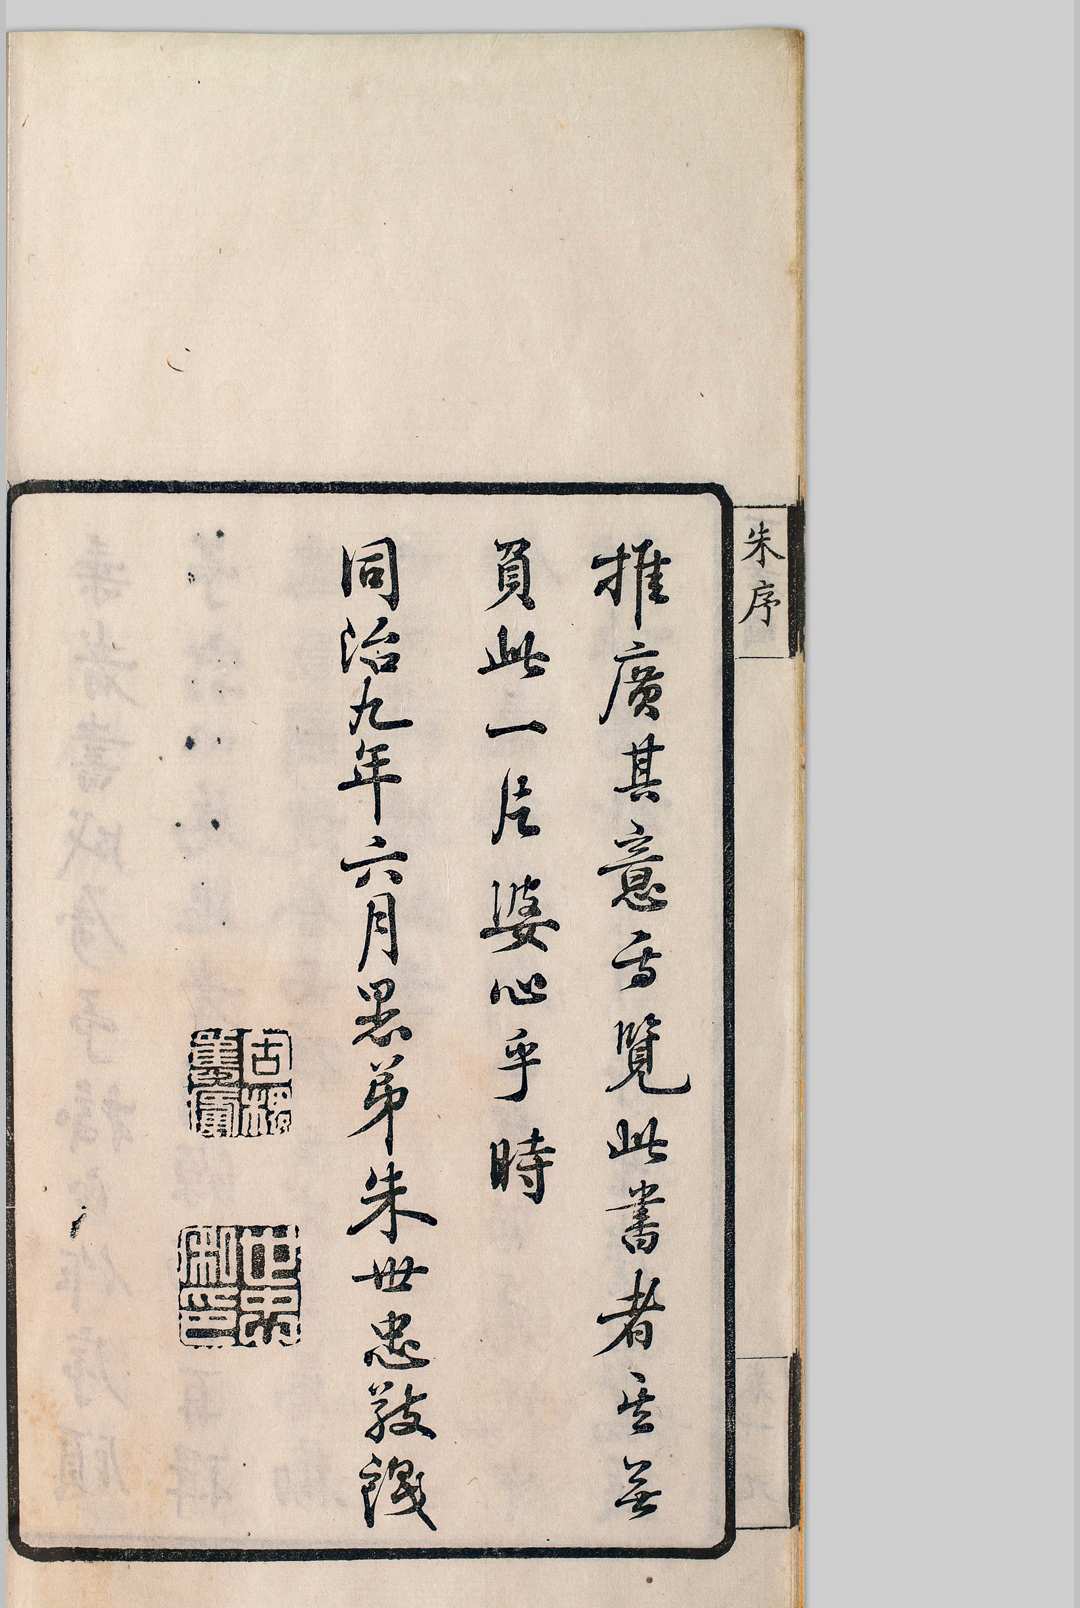 朱序
推廣其意焉覽此書者其無
負此一片婆心乎時
同治九年六月愚弟朱世忠敬識
世忠私印